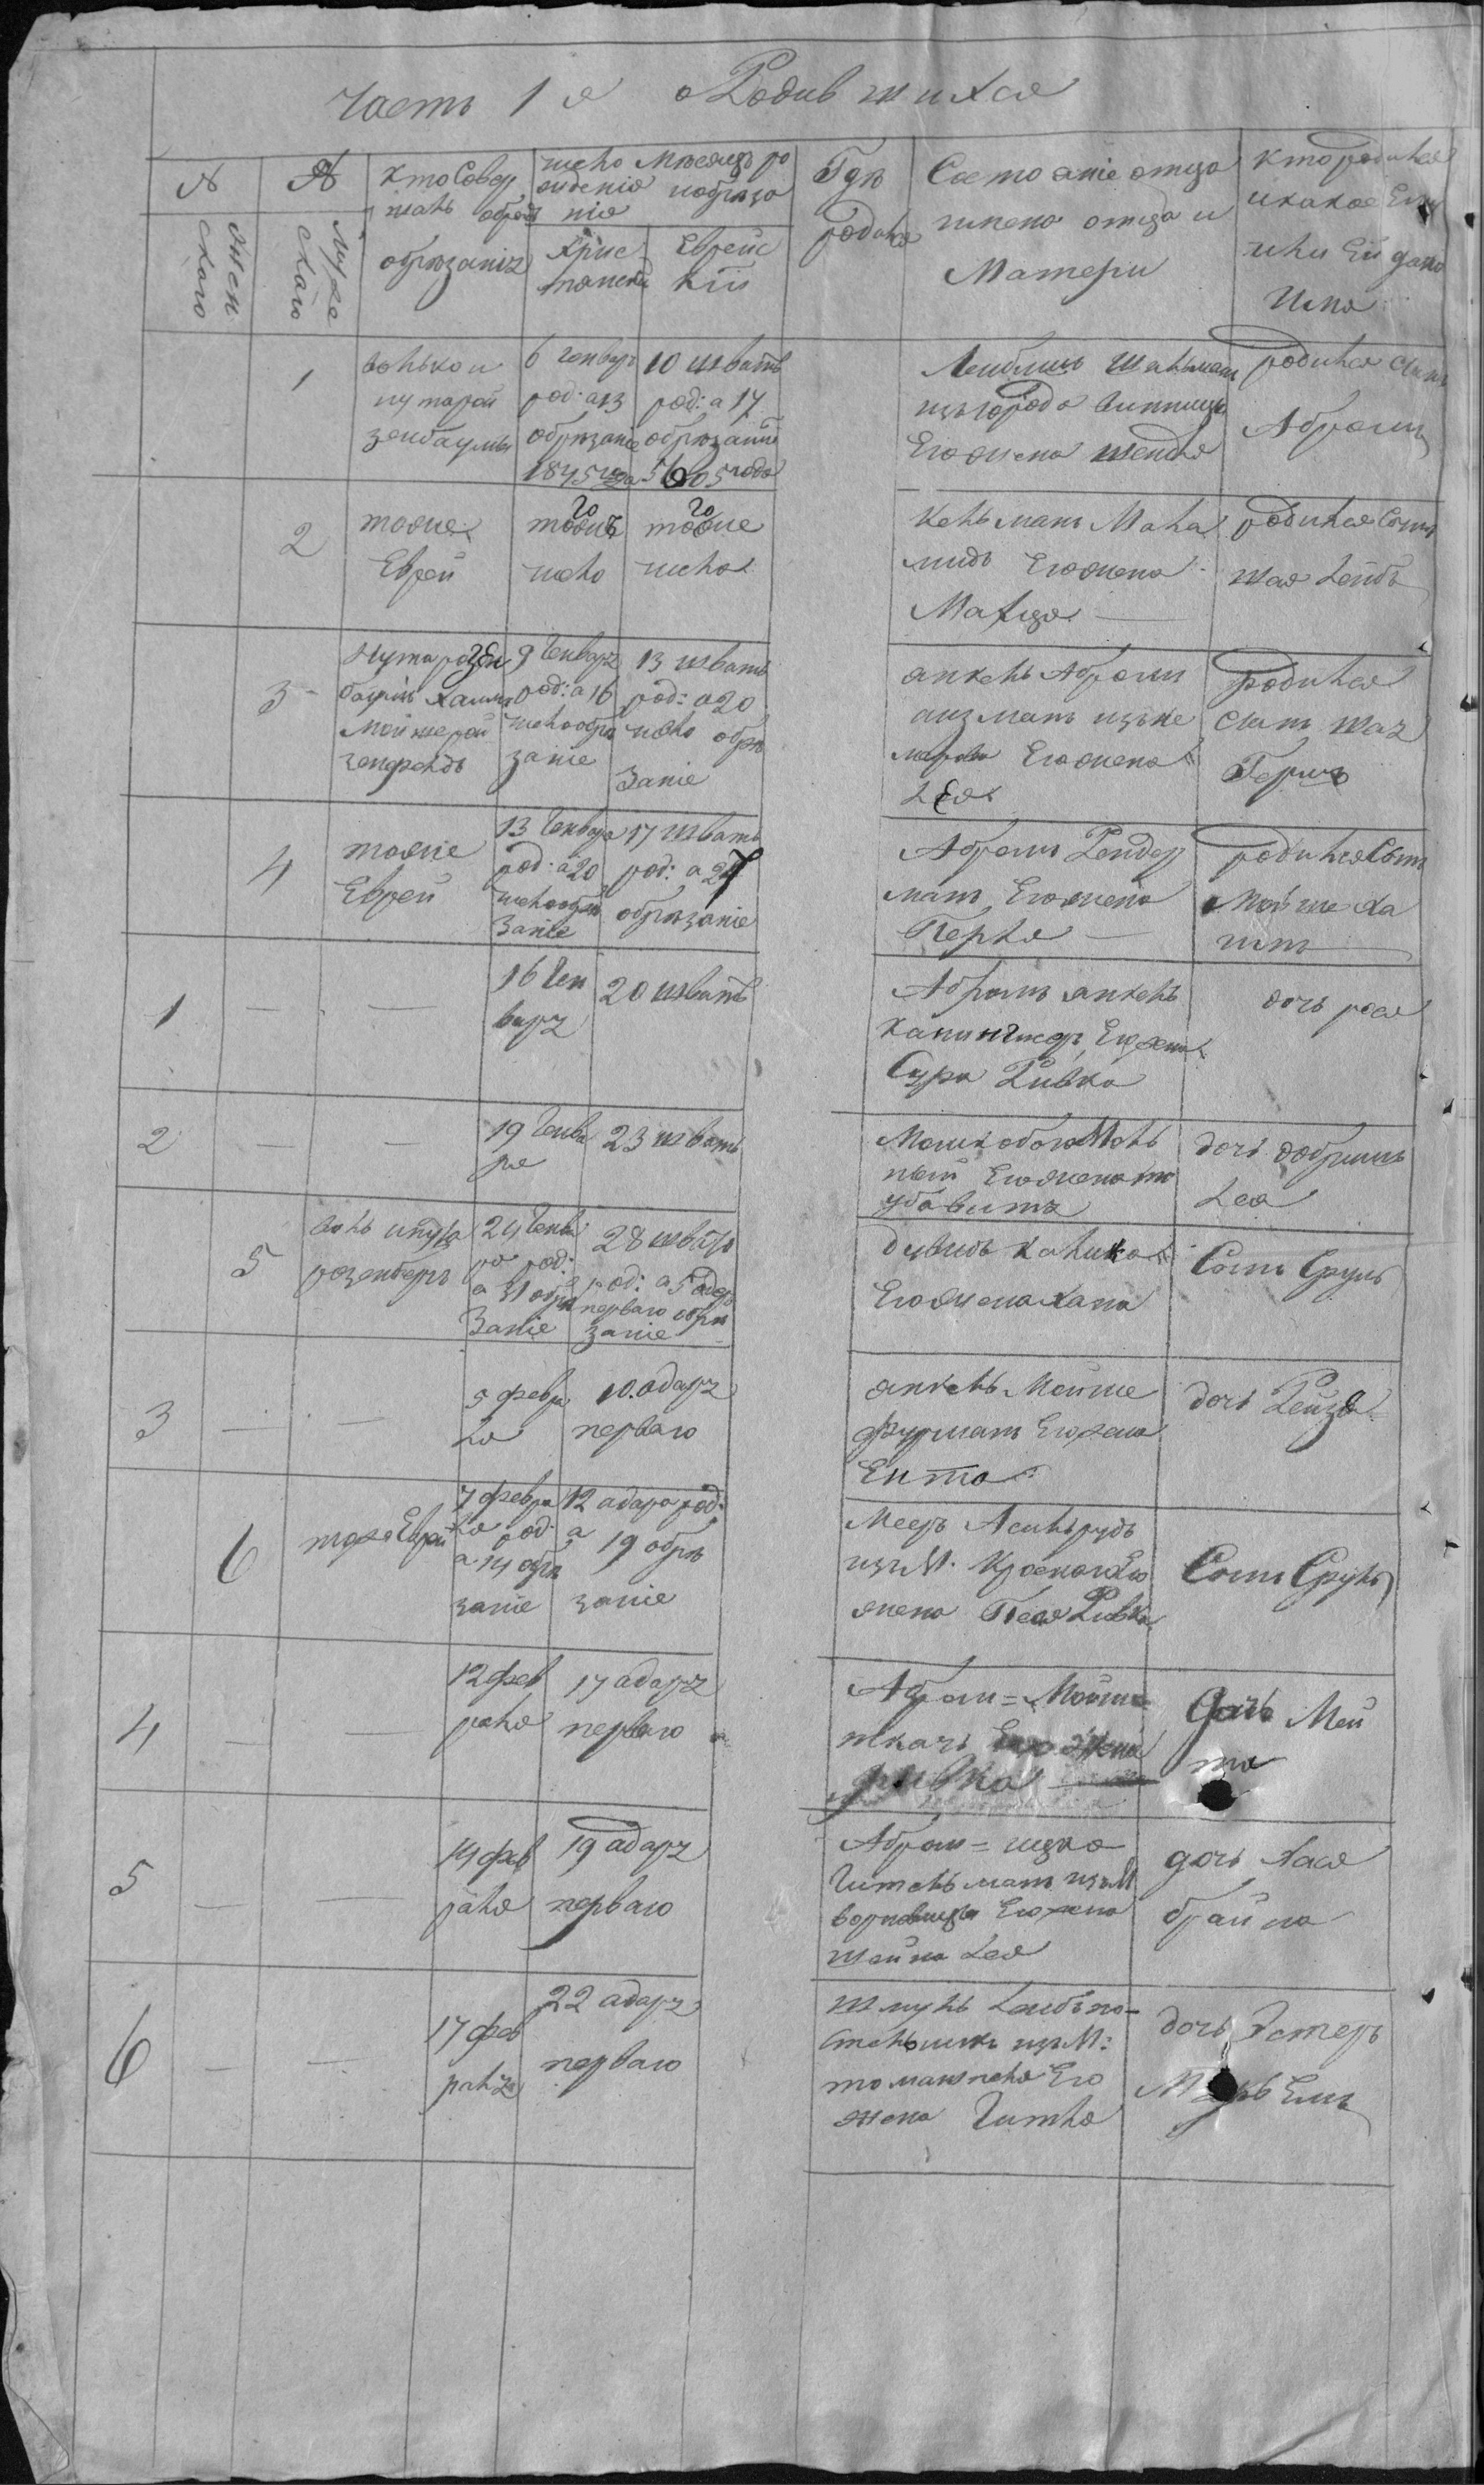 Часть 1я о Родившихся
№ женскаго
№ Мужескаго
Кто Совер
шалъ обрядъ
обрѣзанія
число Мѣсяцъ ро
жденія и обрѣза
нія
Христіанскій
Еврейс
кій
Гдѣ
родился
Состояніе отца
имена отца и
Матери
Кто родился
и какое Ему
или Ей дано
Имя
1
волько и
нута рой
зенбаумъ
6 Генваря
род: а 13
обрѣзаніе
1845 года
10 шватъ
род: а 17
обрѣзаніе
5605 года
Лейбишъ Шальман
изъ города винницы
Его жена шендля
родился сынъ
Абрамъ
2
тоже
Еврей
того же
число
того же
числа
Кельман Мала
мидъ Его жена
Малця
родился сынъ
шая Лейбъ
3
Нута розен
баумъ хаимъ
Мойше рой
9 Генваря
род: а 16
число обрѣ
заніе
13 шватъ
род: а 20
число обрѣ
заніе
янкель Абрам
Его жена
Лея
родился
сынъ шая
Гершъ
4
тоже
Еврей
13 Генваря
род: а 20
число обрѣ
заніе
17 шватъ
род: а 24
обрѣзаніе
Абрамъ Рендер
манъ Его жена
Перля
родился сынъ
Мойше Ха
имъ
1
— —
16 Ген
варя
20 шватъ
Абрамъ янкель
Его жена
Сура Ривка
дочь рося
2
— —
19 Генва
ря
23 шватъ
Его жена то
уба витя
дочь добришъ
Лея
5
розенберъ
24 Генва
ря род:
а 31 обрѣ
заніе
28 шватъ
род: а 5 адар
перваго обрѣ
заніе
дувидъ калика
Его жена хана
Сынъ Сруль
3
— —
5 февра
ля
10. адаря
перваго
янкель Мойше
фурманъ Его жена
Ента
дочь Рейзя
6
тоже Еврей
7 февра
ля род:
а 14 обрѣ
заніе
12 адара род:
а 19 обрѣ
заніе
Мееръ
изъ М. Его
жена Песя Ривка
Сынъ Сруль
4
— —
12 фев
раля
17 адаря
перваго
Абрам = Мойше
ткачъ Его жена
ривка
дочь Мен
тя
5
—
14 фев
раля
19 адаря
перваго
Абрам = ицко
Гительманъ изъ М
Его жена
шейна Лея
дочь хася
брайна
6
— —
17 фев
раля
22 адаря
перваго
шмуль Лейбъ по
изъ М:
томашполя Его
жена Гитля
дочь Эстеръ